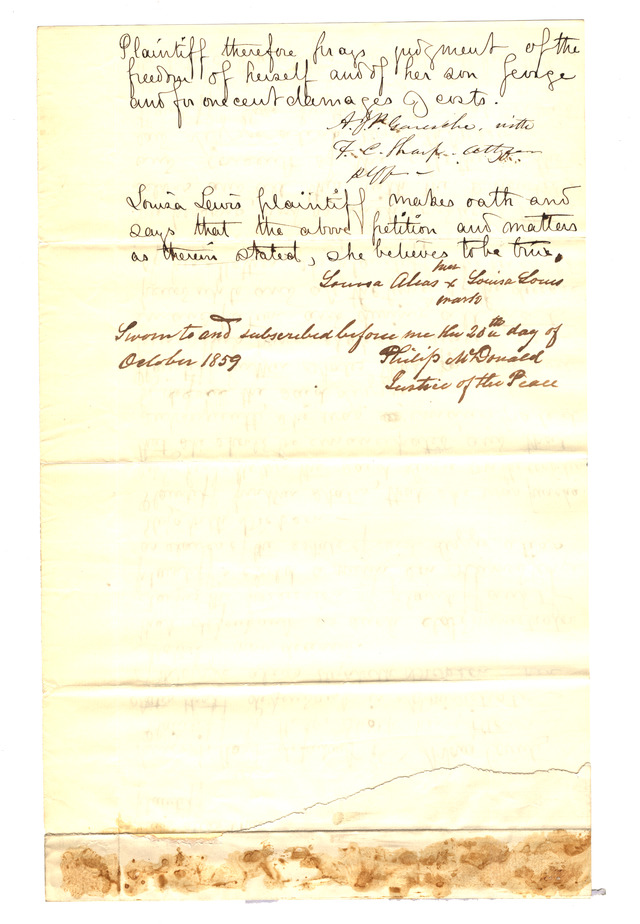 Plaintiff therefore prays judgment of the
freedom of herself and of her son George
and for one cent damages & costs.
A.J.P. Garesche, with
F. C. Sharp. atty for
plff –
Louisa Lewis plaintiff makes oath and
says that the above petition and matters
as therein stated, she believes to be true.
her
Louisa Alias x Louisa Louis
mark
Sworn to and subscribed before me this 20th day of
October 1859
Philip McDonald
Justice of the Peace